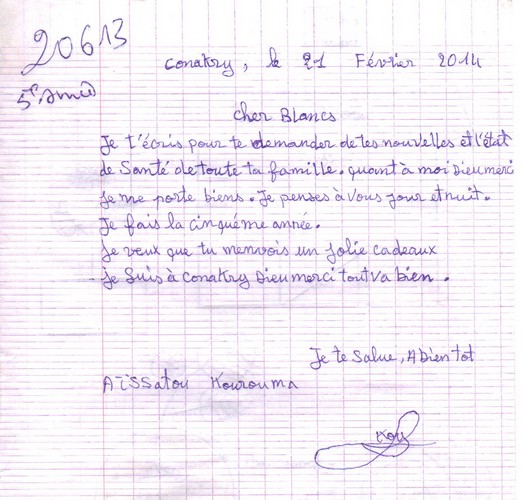 20613
5e année
Conakry, le 21 Février 2014
Cher Blancs
Je t'écris pour te demander de tes nouvelles et l'état
de Santé de toute ta famille. quant à moi Dieu merci
je me porte biens. Je penses à vous jour et nuit.
Je fais la cinquéme année.
Je veux que tu menvois un jolie cadeaux
- je Suis à Conakry Dieu merci tout va bien.
Je te Salue, A bien tot
Aïssatou Kourouma
Kou